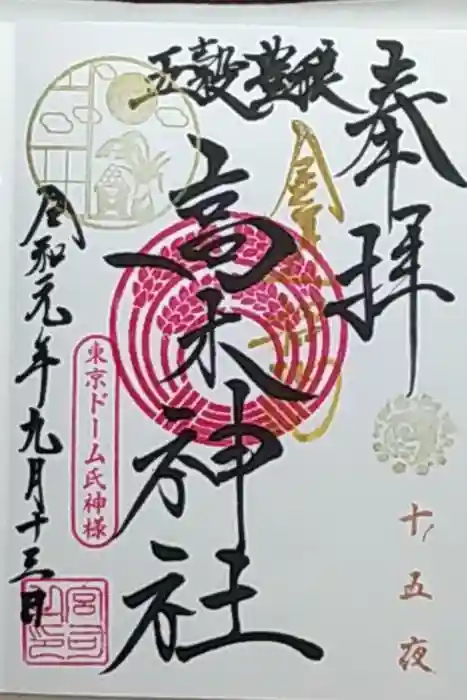 奉拝
十五夜
五穀豊穣
高木神社
東京ドーム氏神様
令和元年九月十三日
宮司之印